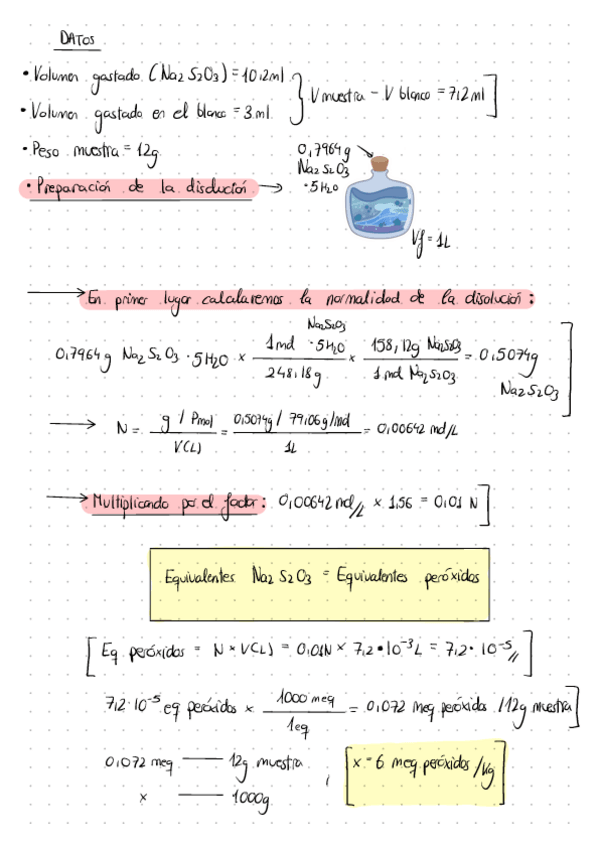 DATOS
• Volumen gastado (Na2S2O3) = 10,2ml
• Volumen gastado en el blanco = 3 ml
V muestra - V blanco = 7,2 ml
• Peso muestra = 12g
• Preparación de la disolución →
0,7964g
Na2S2O3
·5H2O
Vf = 1L
→ En primer lugar calcularemos la normalidad de la disolución:
0,7964g Na2S2O3 · 5H2O × 1mol Na2S2O3 ·5H2O / 248,18g × 158,12g Na2S2O3 / 1mol Na2S2O3 = 0,5074g Na2S2O3
→ N = g / Pmol / V(L) = 0,5074g / 79,06g/mol / 1L = 0,00642 mol/L
→ Multiplicando por el factor: 0,00642 mol/L × 1,56 = 0,01 N
Equivalentes Na2S2O3 = Equivalentes peróxidos
Eq peróxidos = N × V(L) = 0,01N × 7,2 • 10⁻³ L = 7,2 · 10⁻⁵//
7,2·10⁻⁵ eq peróxidos × 1000 meq / 1eq = 0,072 meq peróxidos / 12g muestra
0,072 meq — 12g muestra
x — 1000g
, x = 6 meq peróxidos/kg